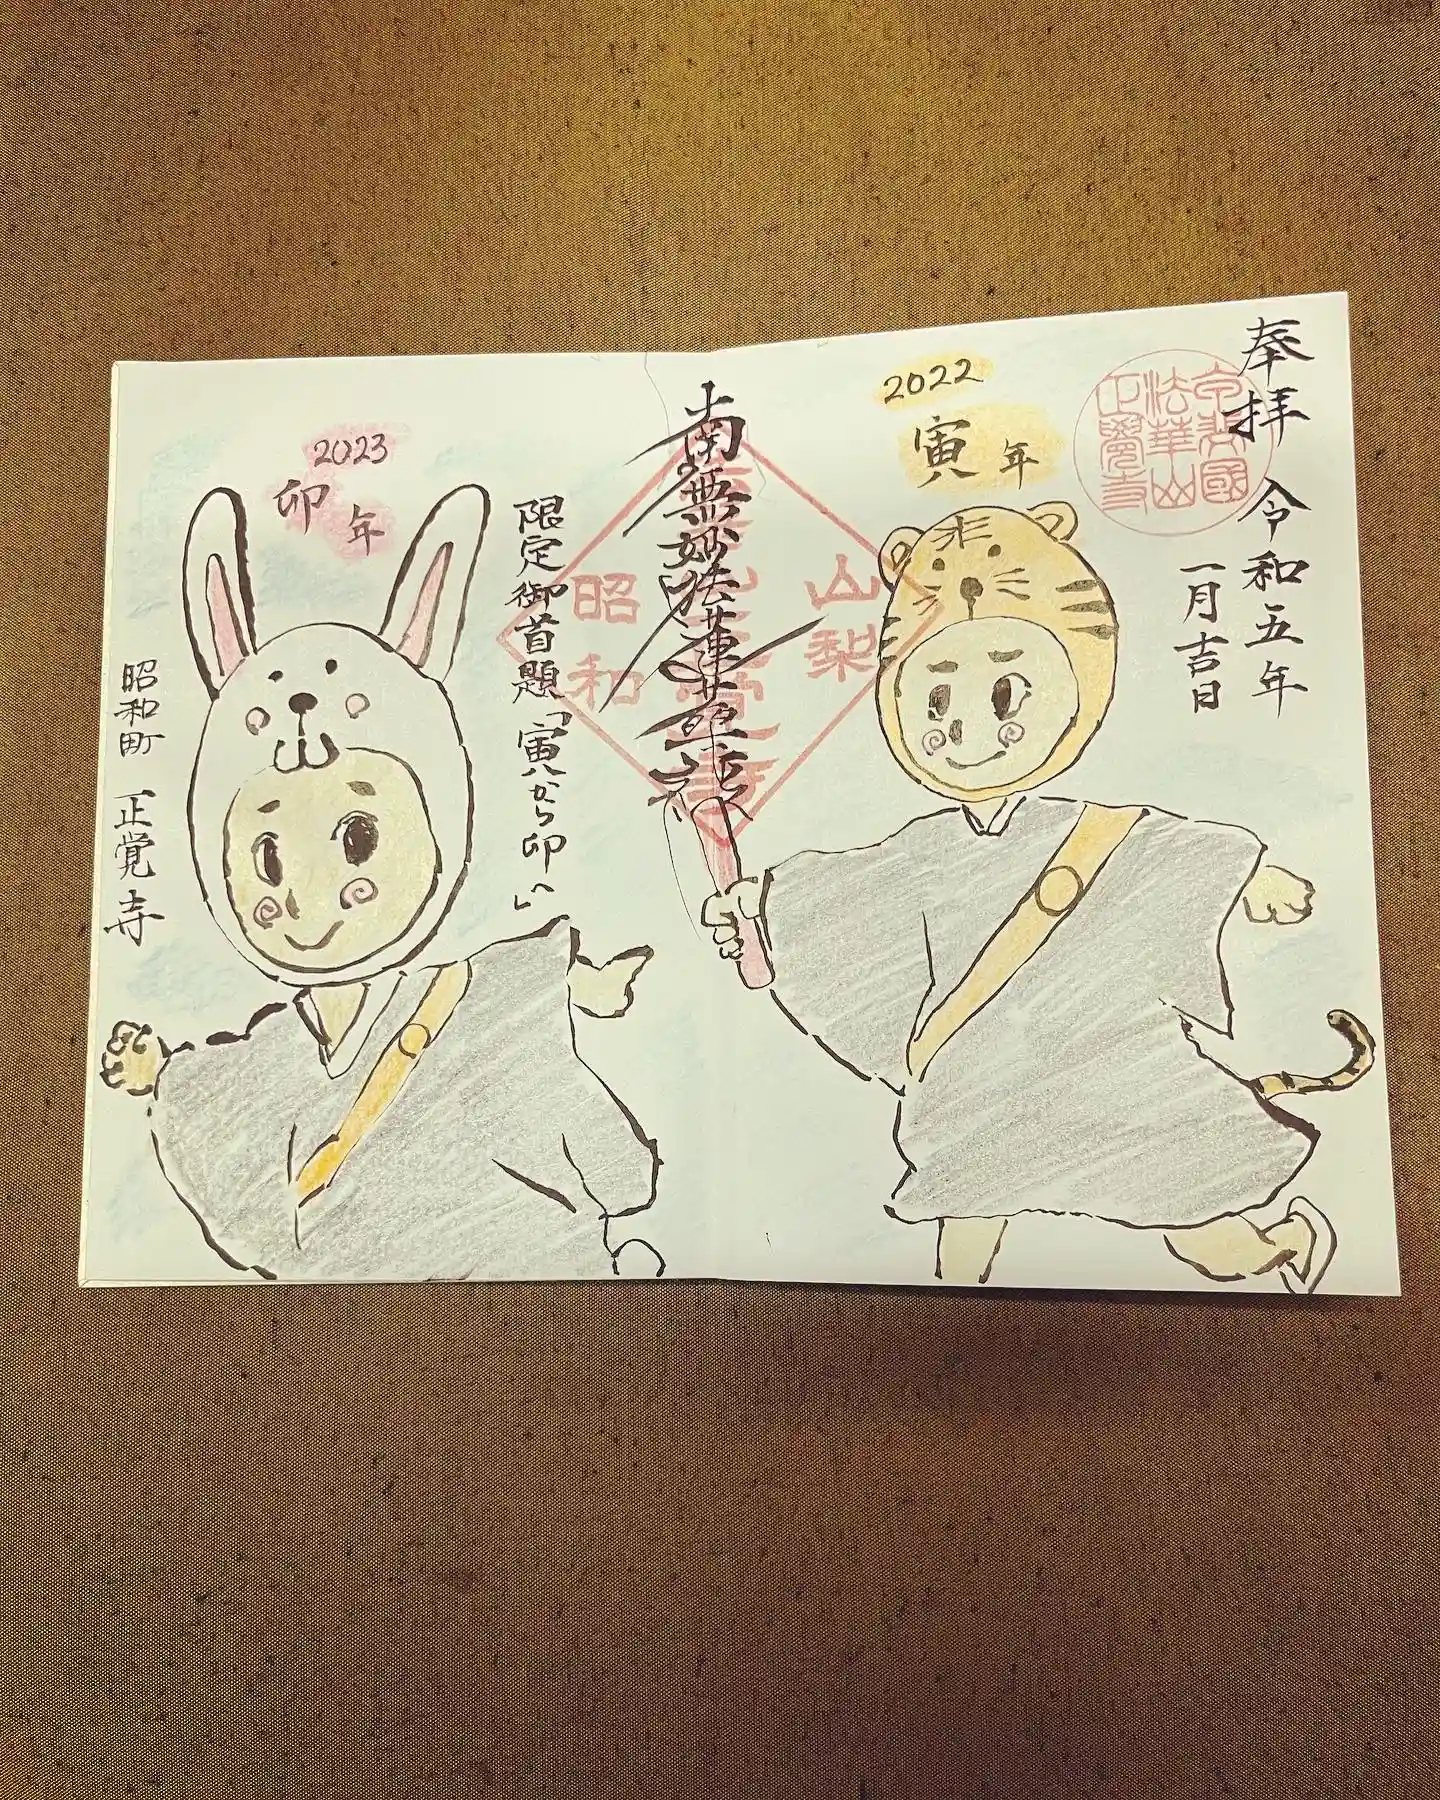 奉拝 令和五年
一月吉日
甲斐國
法華山
正覺寺
2022
寅年
山梨
南無妙法蓮華経
昭和
正覚寺
限定御首題「寅から卯へ」
2023
卯年
昭和町 正覚寺